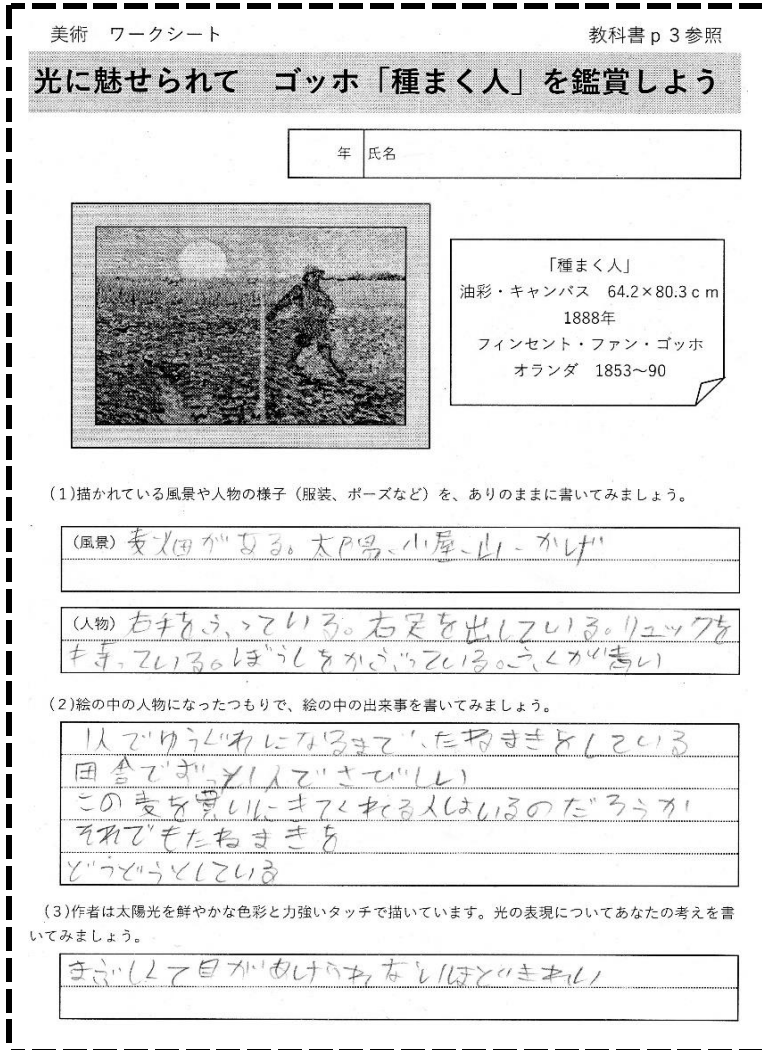 美術　ワークシート　教科書ｐ３参照
光に魅せられて　ゴッホ「種まく人」を鑑賞しよう
年　氏名
「種まく人」
油彩・キャンバス　64.2×80.3ｃｍ
1888年
フィンセント・ファン・ゴッホ
オランダ　1853～90
(１)描かれている風景や人物の様子（服装、ポーズなど）を、ありのままに書いてみましょう。
（風景）麦畑がある。太陽、小屋、山、かげ
（人物）右手をふっている。右足を出している。リュックを
持っている。ぼうしをかぶっている。ふくが青い
(２)絵の中の人物になったつもりで、絵の中の出来事を書いてみましょう。
1人でゆうぐれになるまで、たねまきをしている
田舎でずっと1人でさびしい
この麦を買いにきてくれる人はいるのだろうか
それでもたねまきを
どうどうとしている
(３)作者は太陽光を鮮やかな色彩と力強いタッチで描いています。光の表現についてあなたの考えを書
いてみましょう。
まぶしくて目があけられないほどきれい